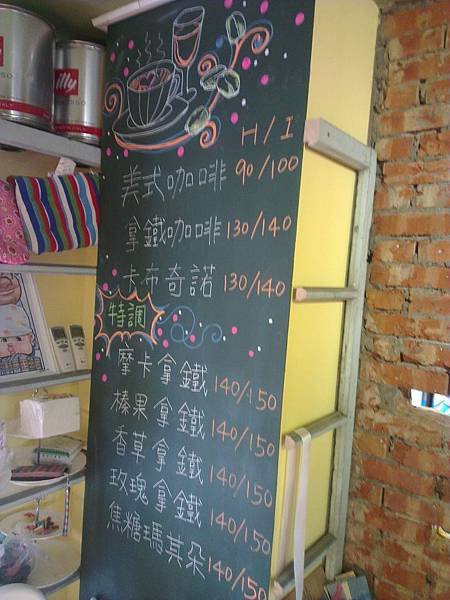 illy
illy
H / I
美式咖啡 90/100
拿鐵咖啡 130/140
卡布奇諾 130/140
特調
摩卡拿鐵 140/150
榛果拿鐵 140/150
香草拿鐵 140/150
玫瑰拿鐵 140/150
焦糖瑪其朵 140/150